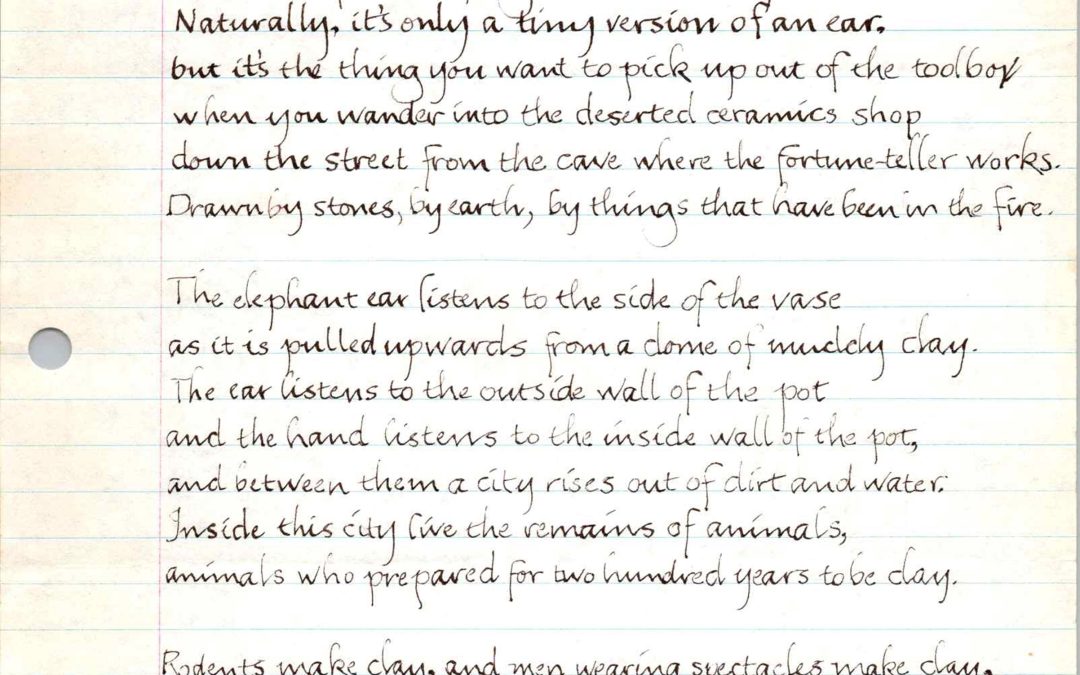 Naturally, it's only a tiny version of an ear,
but it's the thing you want to pick up out of the toolbox
when you wander into the deserted ceramics shop
down the street from the cave where the fortune-teller works.
Drawn by stones, by earth, by things that have been in the fire.
The elephant ear listens to the side of the vase
as it is pulled upwards from a dome of muddy clay.
The ear listens to the outside wall of the pot
and the hand listens to the inside wall of the pot,
and between them a city rises out of dirt and water.
Inside this city live the remains of animals,
animals who prepared for two hundred years to be clay.
Rodents make clay, and men wearing spectacles make clay,